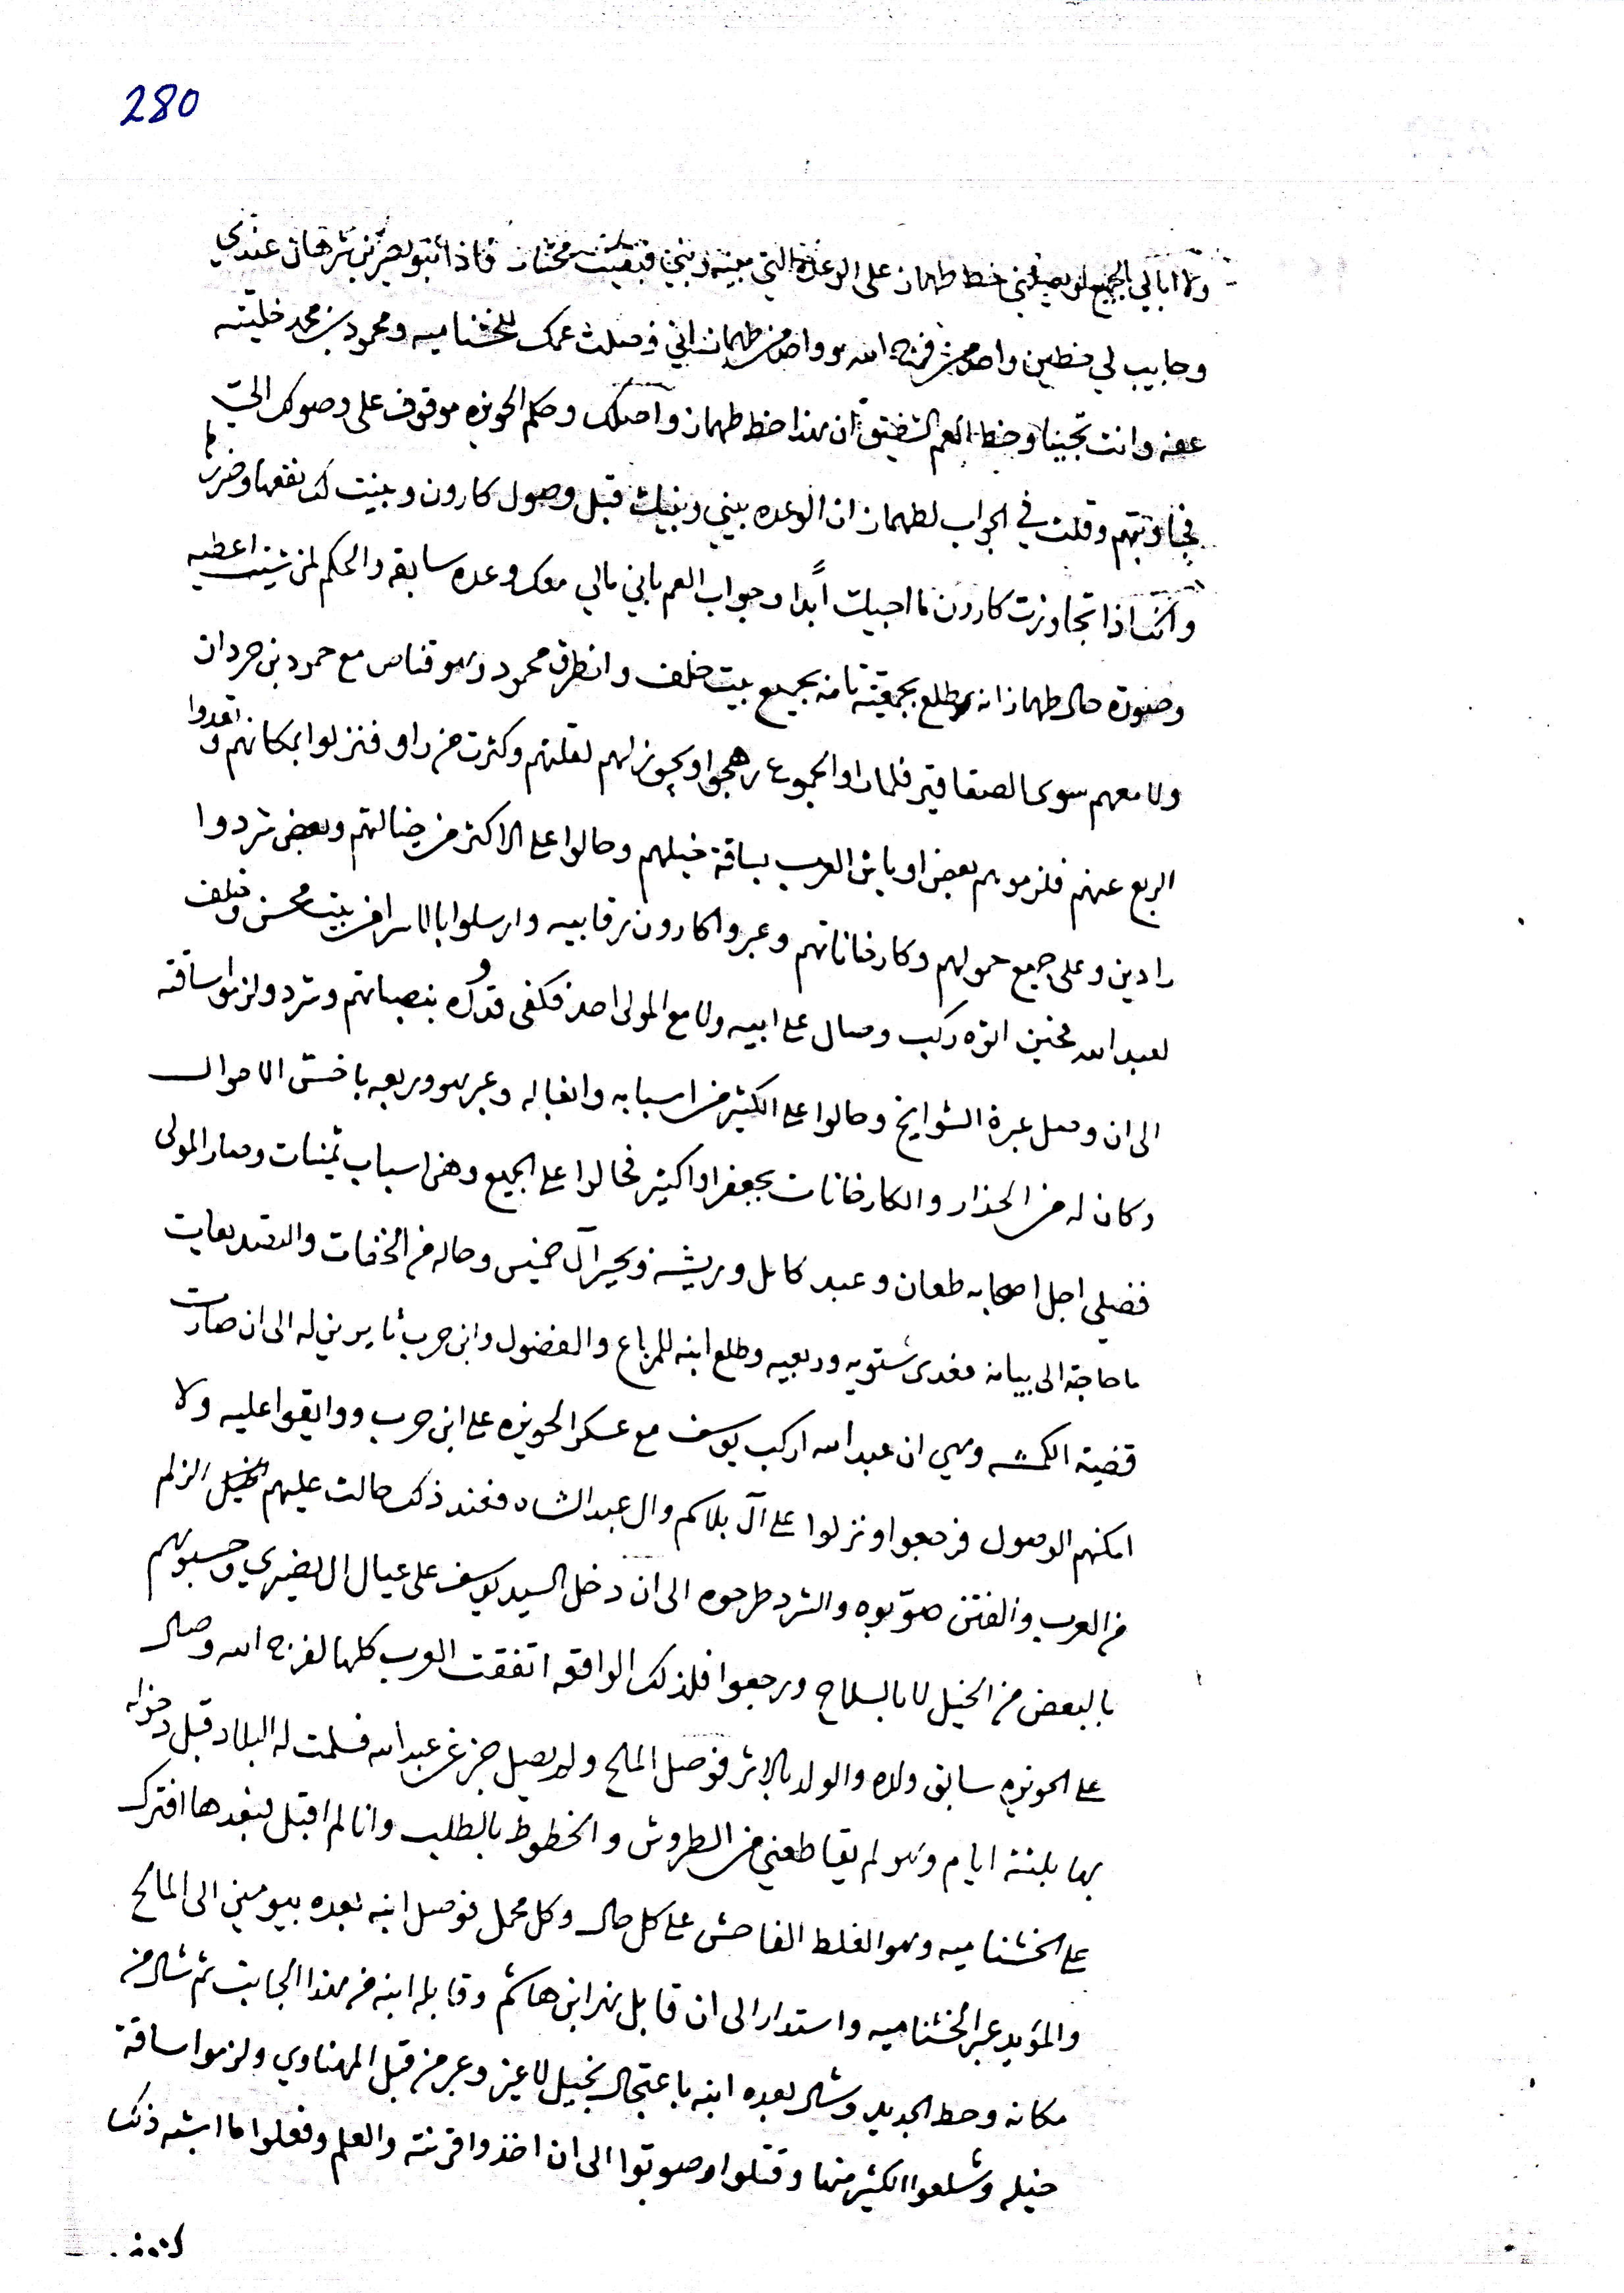 280
ولا ابالي الجميع لو يصلني خط طهماز على الوعدة التي بينه وبيني فبقيت محتار فاذا
وجايب لي خطين واحد من فرج الله وواحد من طهماز اني وصلت عمك للخشناميه ومحمود بن محمد خليته
عنه وانت تجينا وخط العم الشفيق ان هذا خط طهماز وآصلك وحكم الحويزه موقوف على وصولك الي
فجاوبتهم وقلت في الجواب لطهماز ان الوعده بيني وبينك قبل وصول كارون وبينت لك نفعها وضررها
وانك اذا تجاوزت كارون ما اجيك ابدًا وجواب العم باني مالي معك وعده سابقه والحكم لمن شيت اعطيه
وصورة حال طهماز انه طلع بجمعيته تامه بجميع بيت خلف وانطرق محمود وهو قناص مع حمود بن حردان
ولا معهم سوى الصقاقير فلما راو الجموع رهجوا لهم لقلتهم وكثرت من راو فنزلوا بمكانهم و تعدوا
الربع عنهم فلزموهم بعض اوباش العرب بساقة خيلهم وحالوا على الاكثر من خيالتهم وبعض شردوا
رادين وعلى جميع حمولهم وكارخاناتهم وعبروا كارون رقابيه وارسلوا بالاسرا من بيت محسن وخلف
لعبد الله فحين اتوه ركب وصال على ابيه ولا مع المولى احد فكفى قدره بنصبانهم وشرد ولزموا ساقته
الى ان وصل عبرة الشوايخ وحالوا على الكثير من اسبابه واثقاله وعبر هو وربعه باخش الاحوال
وكان له من الحذار والكارخانات بجعفراوا كثير فحالوا على الجميع وهن اسباب ثمينات وصار المولى
فضيلي اجل اصحابه طعان وعبد كامل وريشه وبحير آل خميس وحاله من الخفات والتصديعات
ما حاجة الى بيانه فغدى شتويه وربعيه وطلع ابنه للمرباع والفضول وابن حرب ثايرين له الى ان صارت
قضية الكـــه وهي ان عبد الله اركب يوسف مع عسكر الحويزه على ابن حرب ووايقوا عليه ولا
امكنهم الوصول فرجعوا ونزلوا على آل بلاكم وال عبد الشاه فعند ذلك حالت عليهم الخيل الزلم
من العرب والفتن صوّبوه والشرد طرحوه الى ان دخل السيد يوسف على عيال ال نصيري وحسبوهم
بالبعض من الخيل لا بالسلاح ورجعوا فلذلك الواقعه اتفقت العرب كلها لفرج الله وصال
على الحويزه سابق ولده والولد بالاثر فوصل المالح ولم يصل خبر عن عبد الله فسلمت له البلاد قبل دخوله
بها بثلثة ايام وهو لم يقاطعني من الطروش والخطوط بالطلب وانا لم اقبل فبعدها افترك
على الخشناميه وهو الغلط الفاحش على كل حال وكل محمل فوصل ابنه بعده بيومين الى المالح
والمؤيد عبر الخشناميه واستدار الى ان قابل نهر ابن هاشم وقابله ابنه من هذا الجانب ثم شال من
مكانه وحط الجديد وشال بعده ابنه باعتجال بخيل لا غير وعبر من قبل المهناوي ولزموا ساقة
خيله وشلعوا الكثير منها وقتلوا وصوبوا الى ان اخذوا قرنته والعلم وفعلوا ما اشبه ذلك